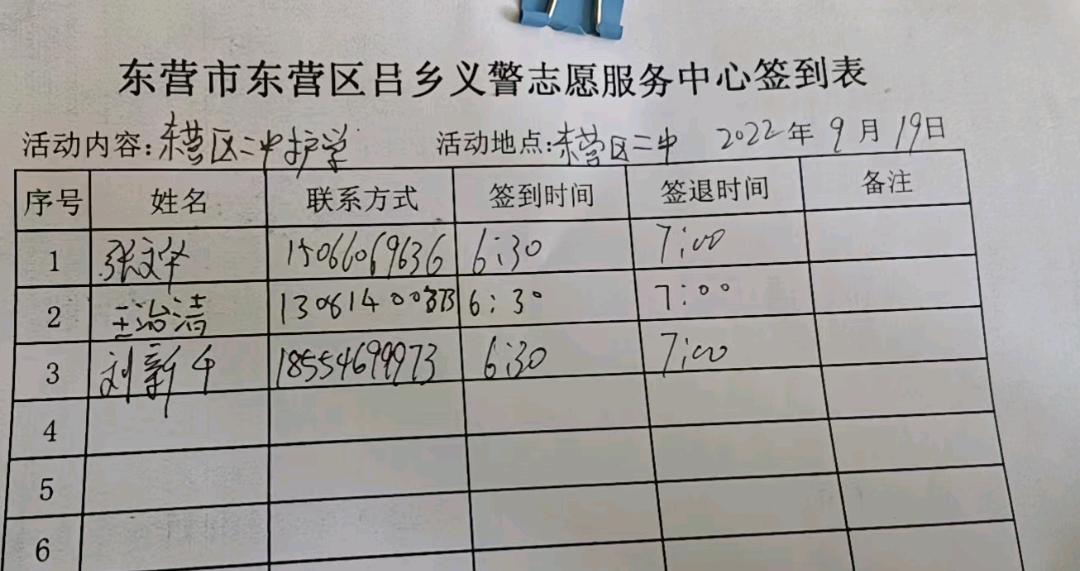 东营市东营区吕乡义警志愿服务中心签到表
活动内容:东营区二中护学 活动地点:东营区二中 2022年9月19日
序号 姓名 联系方式 签到时间 签退时间 备注
1 张文华 15066069636 6:30 7:00
2 王治洁 6:30 7:00
3 刘新 18554699973 6:30 7:00
4
5
6